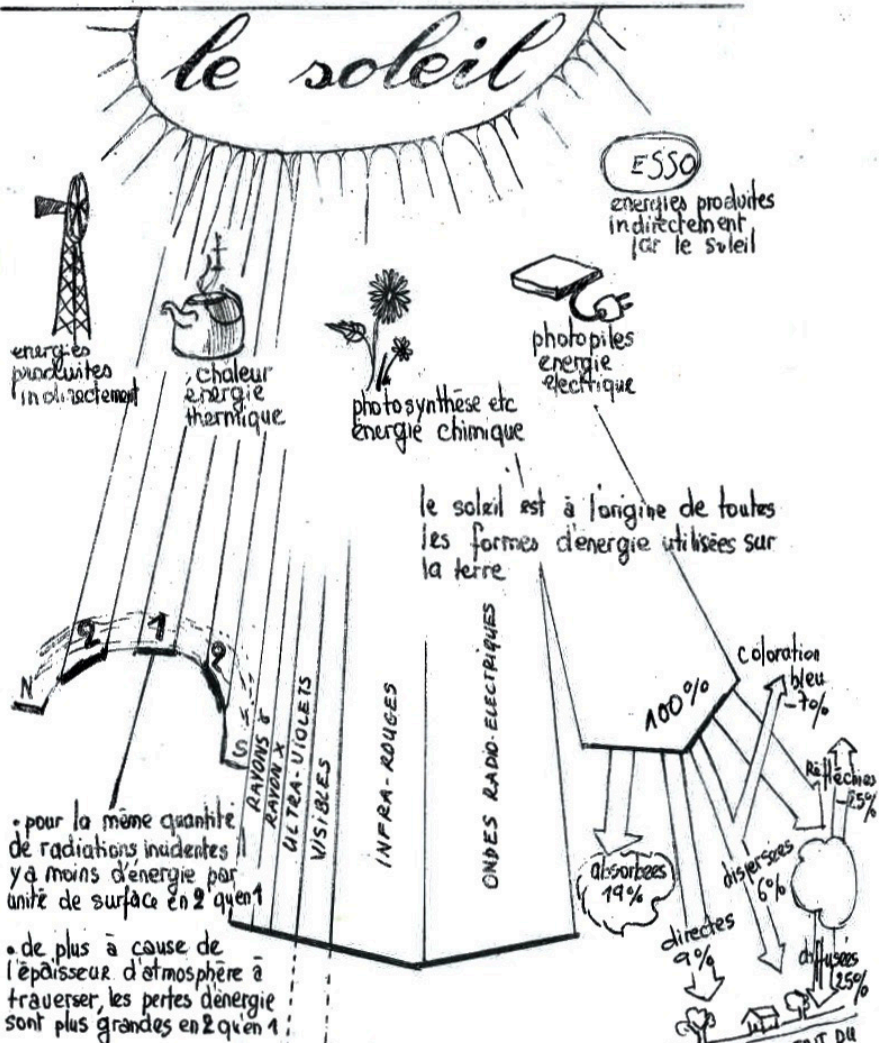 le soleil
ESSO
énergies produites
indirectement
par le soleil
énergies
produites
indirectement
chaleur
énergie
thermique
photosynthèse etc
énergie chimique
photopiles
énergie
électrique
le soleil est à l'origine de toutes
les formes d'énergie utilisées sur
la terre
N
2
1
2
S
RAYONS γ
RAYON X
ULTRA-VIOLETS
VISIBLES
INFRA-ROUGES
ONDES RADIO-ELECTRIQUES
100%
coloration
bleu
-7%
Réfléchies
-25%
absorbées
19%
dispersées
6%
directes
9%
diffusées
25%
• pour la même quantité
de radiations incidentes il
y a moins d'énergie par
unité de surface en 2 qu'en 1
• de plus à cause de
l'épaisseur d'atmosphère à
traverser, les pertes d'énergie
sont plus grandes en 2 qu'en 1
DU